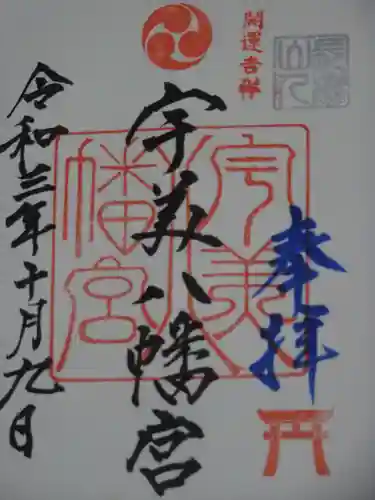 開運吉祥
奉拝
宇美八幡宮
宇美八幡宮
令和三年十月九日